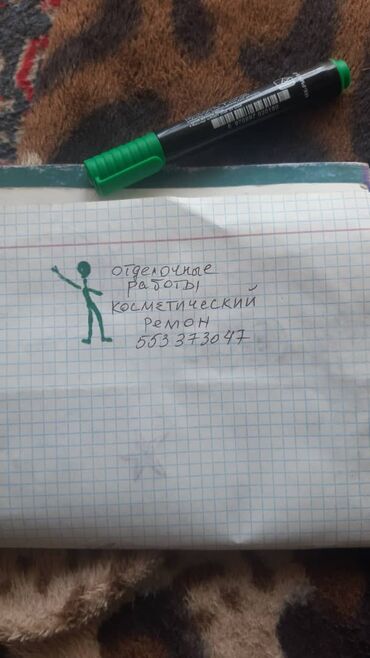 отделочные
работы
косметический
ремон
553373047